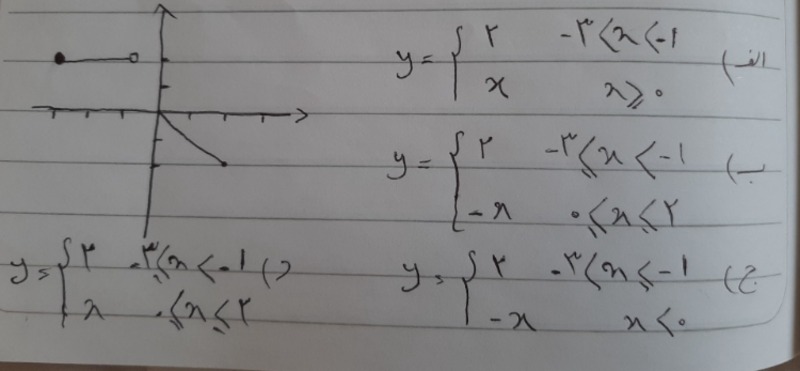 الف) y = { ۲ -۳<x<-۱
x x≥۰
ب) y = { ۲ -۳≤x<-۱
-x ۰≤x≤۲
ج) y = { ۲ -۳<x≤-۱
-x x<۰
د) y = { ۲ -۳≤x<-۱
x ۰≤x≤۲